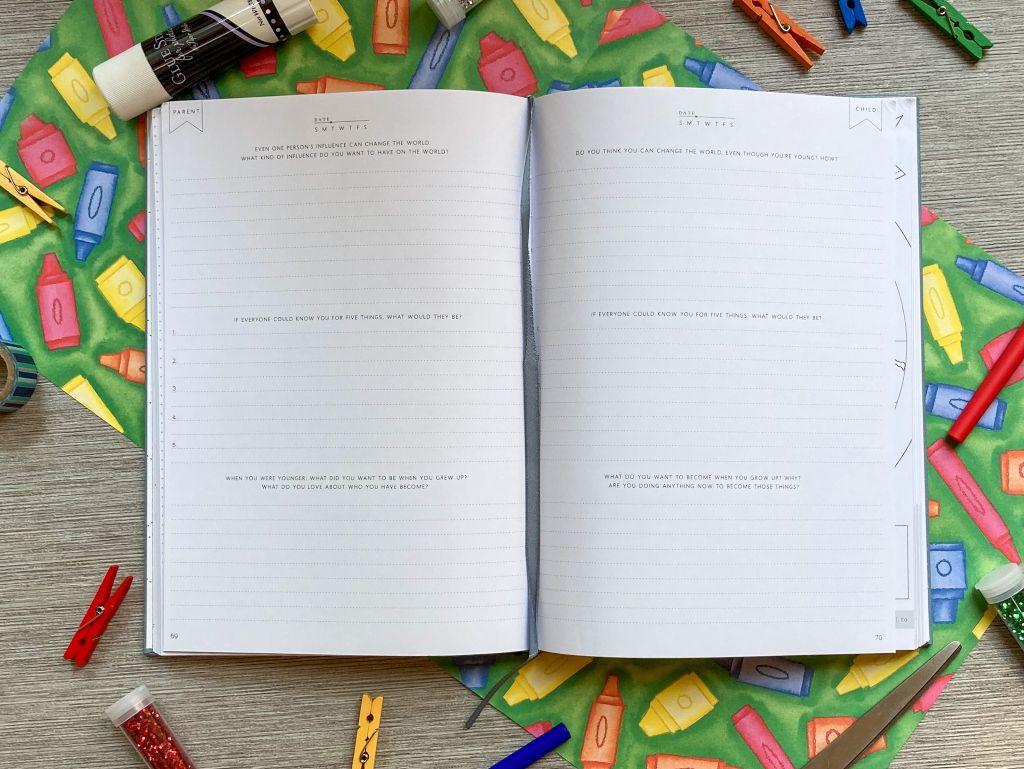 PARENT
DATE
S M T W T F S
EVEN ONE PERSON'S INFLUENCE CAN CHANGE THE WORLD.
WHAT KIND OF INFLUENCE DO YOU WANT TO HAVE ON THE WORLD?
IF EVERYONE COULD KNOW YOU FOR FIVE THINGS, WHAT WOULD THEY BE?
1.
2.
3.
4.
5.
WHEN YOU WERE YOUNGER, WHAT DID YOU WANT TO BE WHEN YOU GREW UP?
WHAT DO YOU LOVE ABOUT WHO YOU HAVE BECOME?
69
CHILD
DATE
S M T W T F S
DO YOU THINK YOU CAN CHANGE THE WORLD, EVEN THOUGH YOU'RE YOUNG? HOW?
IF EVERYONE COULD KNOW YOU FOR FIVE THINGS, WHAT WOULD THEY BE?
WHAT DO YOU WANT TO BECOME WHEN YOU GROW UP? WHY?
ARE YOU DOING ANYTHING NOW TO BECOME THOSE THINGS?
70
to